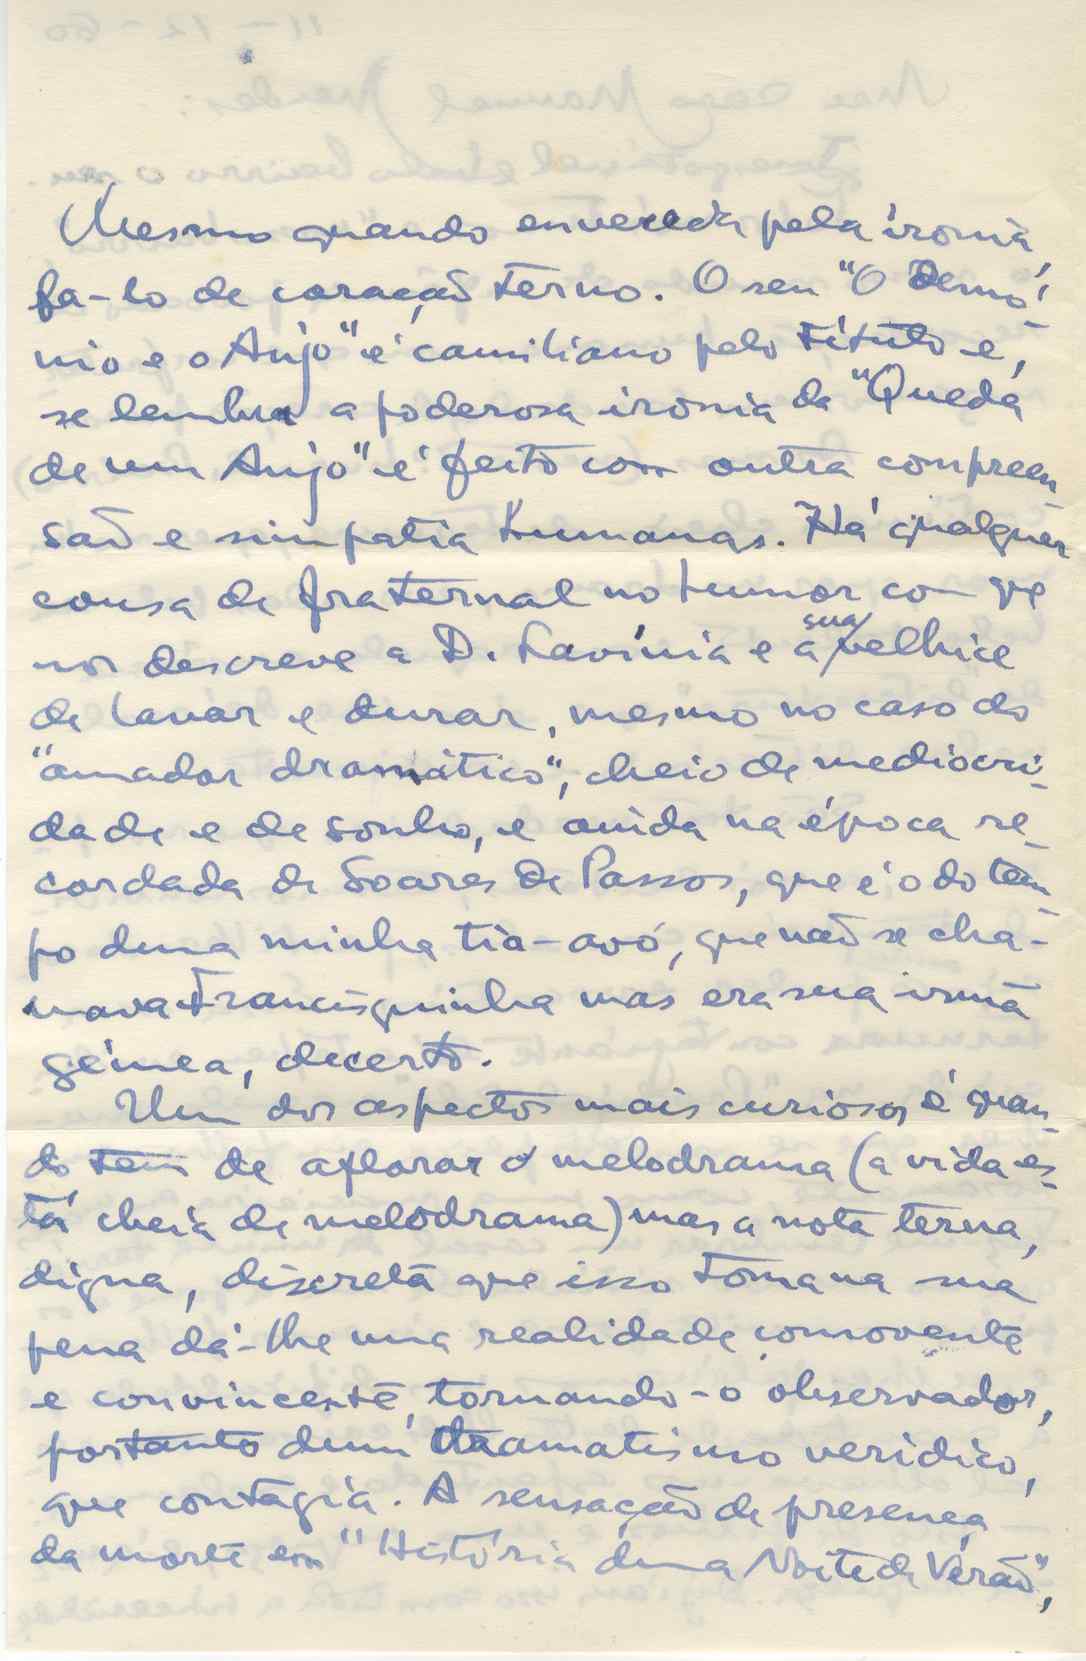 Mesmo quando envereda pela ironia,
fa-lo de coração terno. O seu "O Demó-
nio e o Anjo" é camiliano pelo título e,
se lembra a poderosa ironia da "Queda
de um Anjo" é feito com outra compreen-
são e simpatia humanas. Há qualquer
cousa de fraternal no humor com que
nos descreve a D. Lavínia e a sua velhice
de lavar e durar, mesmo no caso do
"amador dramático", cheio de mediocri-
dade e de sonho, e ainda na época re-
cordada de Soares de Passos, que é o do tem-
po duma minha tia-avó, que não se cha-
mava Francisquinha mas era sua irmã
gémea, decerto.
Um dos aspectos mais curiosos é quan-
do tem de aflorar o melodrama (a vida es-
tá cheia de melodrama) mas a nota terna,
digna, discreta que isso toma na sua
pena dá-lhe uma realidade comovente
e convincente, tornando-o observador,
portanto dum dramatismo verídico,
que contagia. A sensação de presença
da morte em "História duma Noite de Verão",